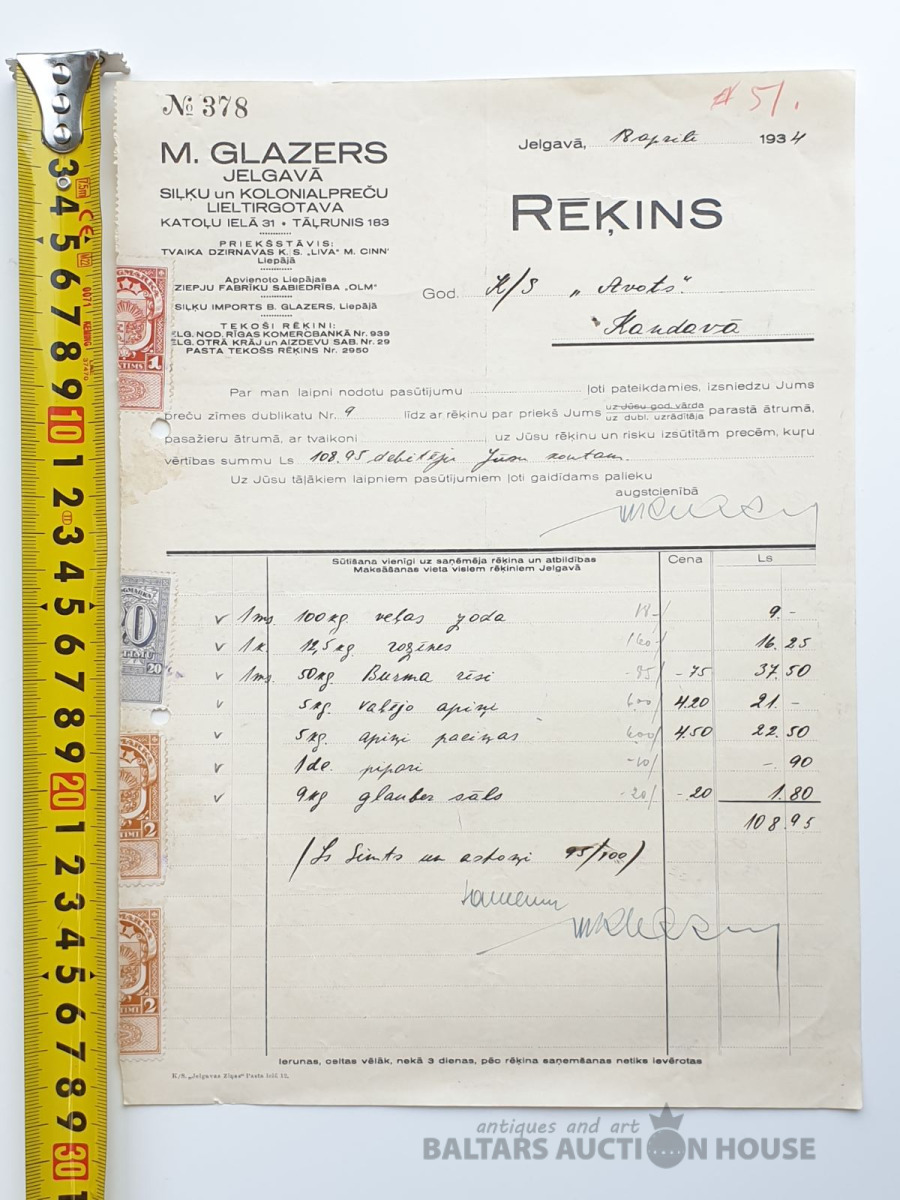 № 378
# 51.
M. GLAZERS
JELGAVĀ
SIĻĶU un KOLONIALPREČU
LIELTIRGOTAVA
KATOĻU IELĀ 31 • TĀĻRUNIS 183
PRIEKŠSTĀVIS:
TVAIKA DZIRNAVAS K. S. „LIVA" M. CINN'
Liepājā
Apvienoto Liepājas
ZIEPJU FABRIĶU SABIEDRĪBA „OLM"
SIĻĶU IMPORTS B. GLAZERS, Liepājā
TEKOŠI RĒĶINI:
ELG. NOD. RĪGAS KOMERCBANKĀ Nr. 939
ELG. OTRĀ KRĀJ un AIZDEVU SAB. Nr. 29
PASTA TEKOŠS RĒĶINS Nr. 2950
Jelgavā, 18 aprilī 1934
RĒĶINS
God. K/S „Avots"
Kandavā
Par man laipni nodotu pasūtījumu ļoti pateikdamies, izsniedzu Jums
preču zīmes dublikatu Nr. 9 līdz ar rēķinu par priekš Jums uz Jūsu god. vārda
uz dubl. uzrādītāja parastā ātrumā,
pasažieru ātrumā, ar tvaikoni , uz Jūsu rēķinu un risku izsūtītām precēm, kuŗu
vērtības summu Ls 108.95 debitēju Jūsu kontam.
Uz Jūsu tāļākiem laipniem pasūtījumiem ļoti gaidīdams palieku
augstcienībā
Sūtīšana vienīgi uz saņēmēja rēķina un atbildības
Maksāšanas vieta visiem rēķiniem Jelgavā
Cena
Ls
v 1 ms. 100 kg veļas zoda 18- 9.-
v 1 k. 12,5 kg. rozīnes 16.25
v 1 ms. 50 kg Burma rīsi -75 37.50
v 5 kg. vaļējo apiņi 600/ 4.20 21.-
v 5 kg. apiņi paciņas 600/ 4.50 22.50
v 1 de. pipari -10/ -.90
v 9 kg glauber sāls -20/ -.20 1.80
108.95
(Ls Simts un astoņi 95/100)
Ierunas, celtas vēlāk, nekā 3 dienas, pēc rēķina saņemšanas netiks ievērotas
K/S. „Jelgavas Ziņas" Pasta ielā 12.
antiques and art
BALTARS AUCTION HOUSE